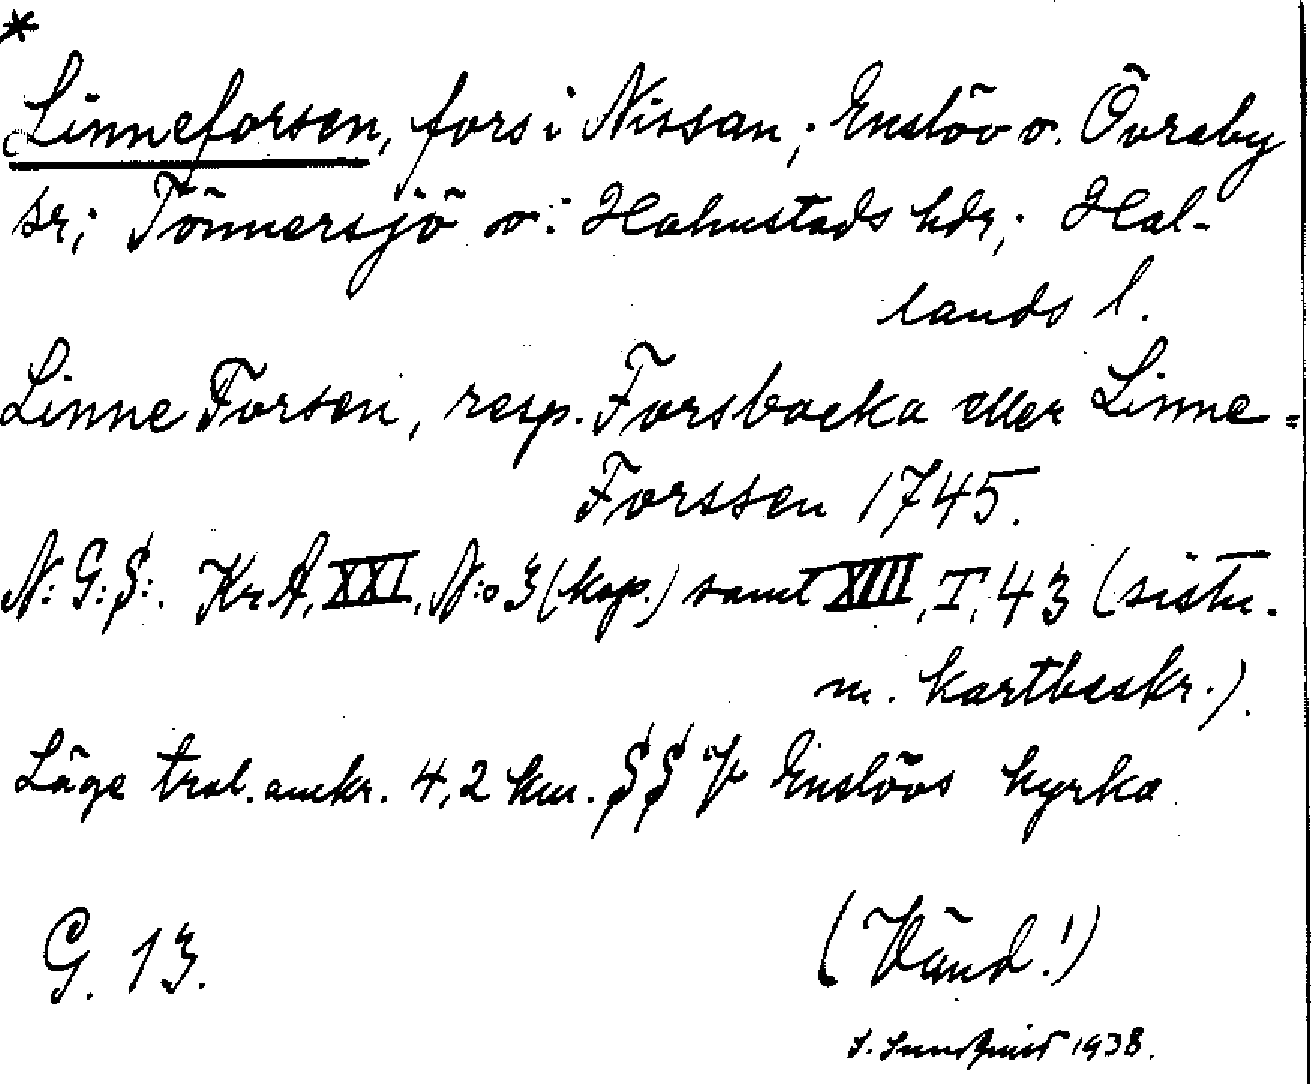 *
Linneforsen, fors i Nissan; Enslöv o. Övraby
sr; Tönnersjö o. Halmstads hdr; Hal-
lands l.
Linne Forsen, resp. Forsbacka eller Linne=
Forssen 1745.
N: G: S:. KrA, XXI, N:o 3 (kop.) samt XIII, I, 43 (sistn.
m. kartbeskr.).
Läge trol. omkr. 4,2 km. SSV Enslövs kyrka.
G. 13.
(Vänd!)
S. Sundquist 1938.